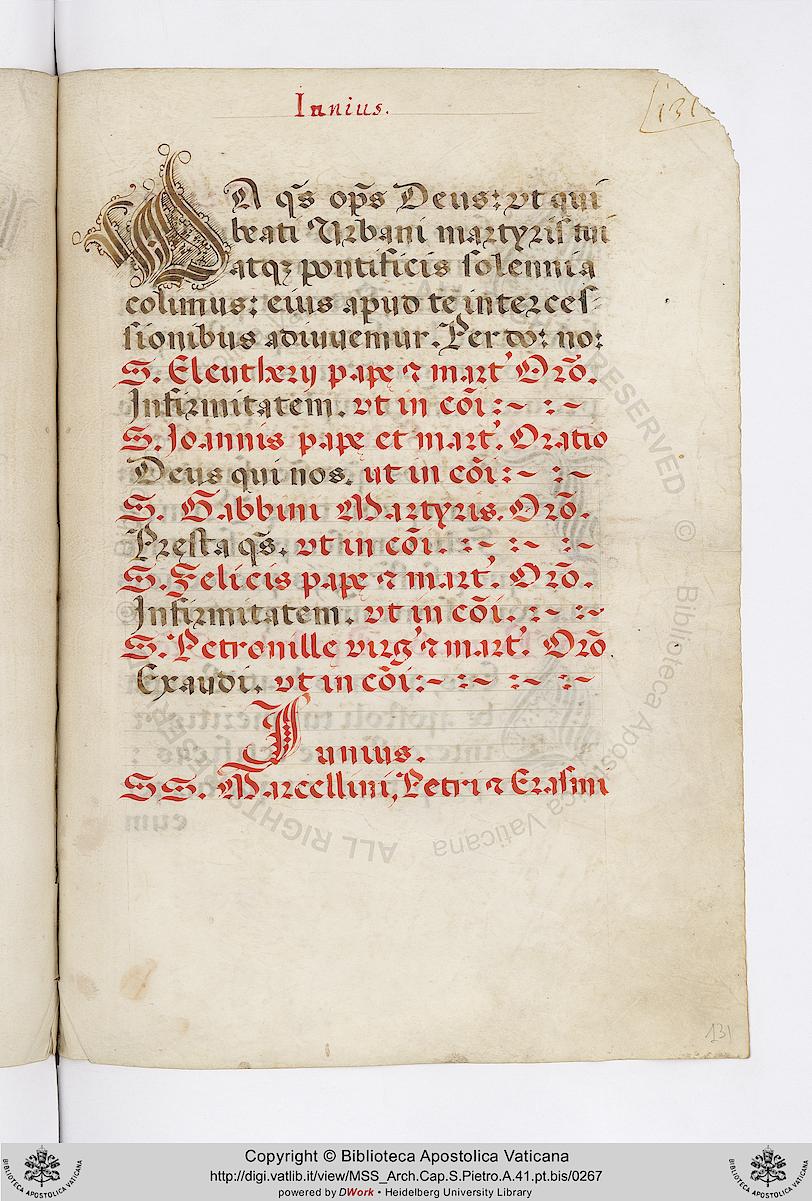 Iunius.
131
DA q̃s op̃s Deus: vt qui
beati Urbani martyris tui
atqꝫ pontificis solennia
colimus: eius apud te interces-
sionibus adiuuemur. Per do: no:
S. Eleutherij papę ⁊ mart' Orõ.
Infirmitatem. vt in cõi :~ :~
S. Joannis papę et mart'. Oratio
Deus qui nos. ut in cõi :~ :~
S. Gabbini Martyris. Orõ.
Presta q̃s. vt in cõi. :~ :~ :~
S. Felicis papę ⁊ mart'. Orõ.
Infirmitatem. vt in cõi. :~ :~
S. Petronillę virg' ⁊ mart'. Orõ
Exaudi. vt in cõi :~ :~ :~ :~
Junius.
SS. Marcellini, Petri ⁊ Erasmi
131
ALL RIGHTS RESERVED © Biblioteca Apostolica Vaticana
Copyright © Biblioteca Apostolica Vaticana
http://digi.vatlib.it/view/MSS_Arch.Cap.S.Pietro.A.41.pt.bis/0267
powered by DWork • Heidelberg University Library
BIBLIOTECA APOSTOLICA VATICANA
BIBLIOTECA APOSTOLICA VATICANA